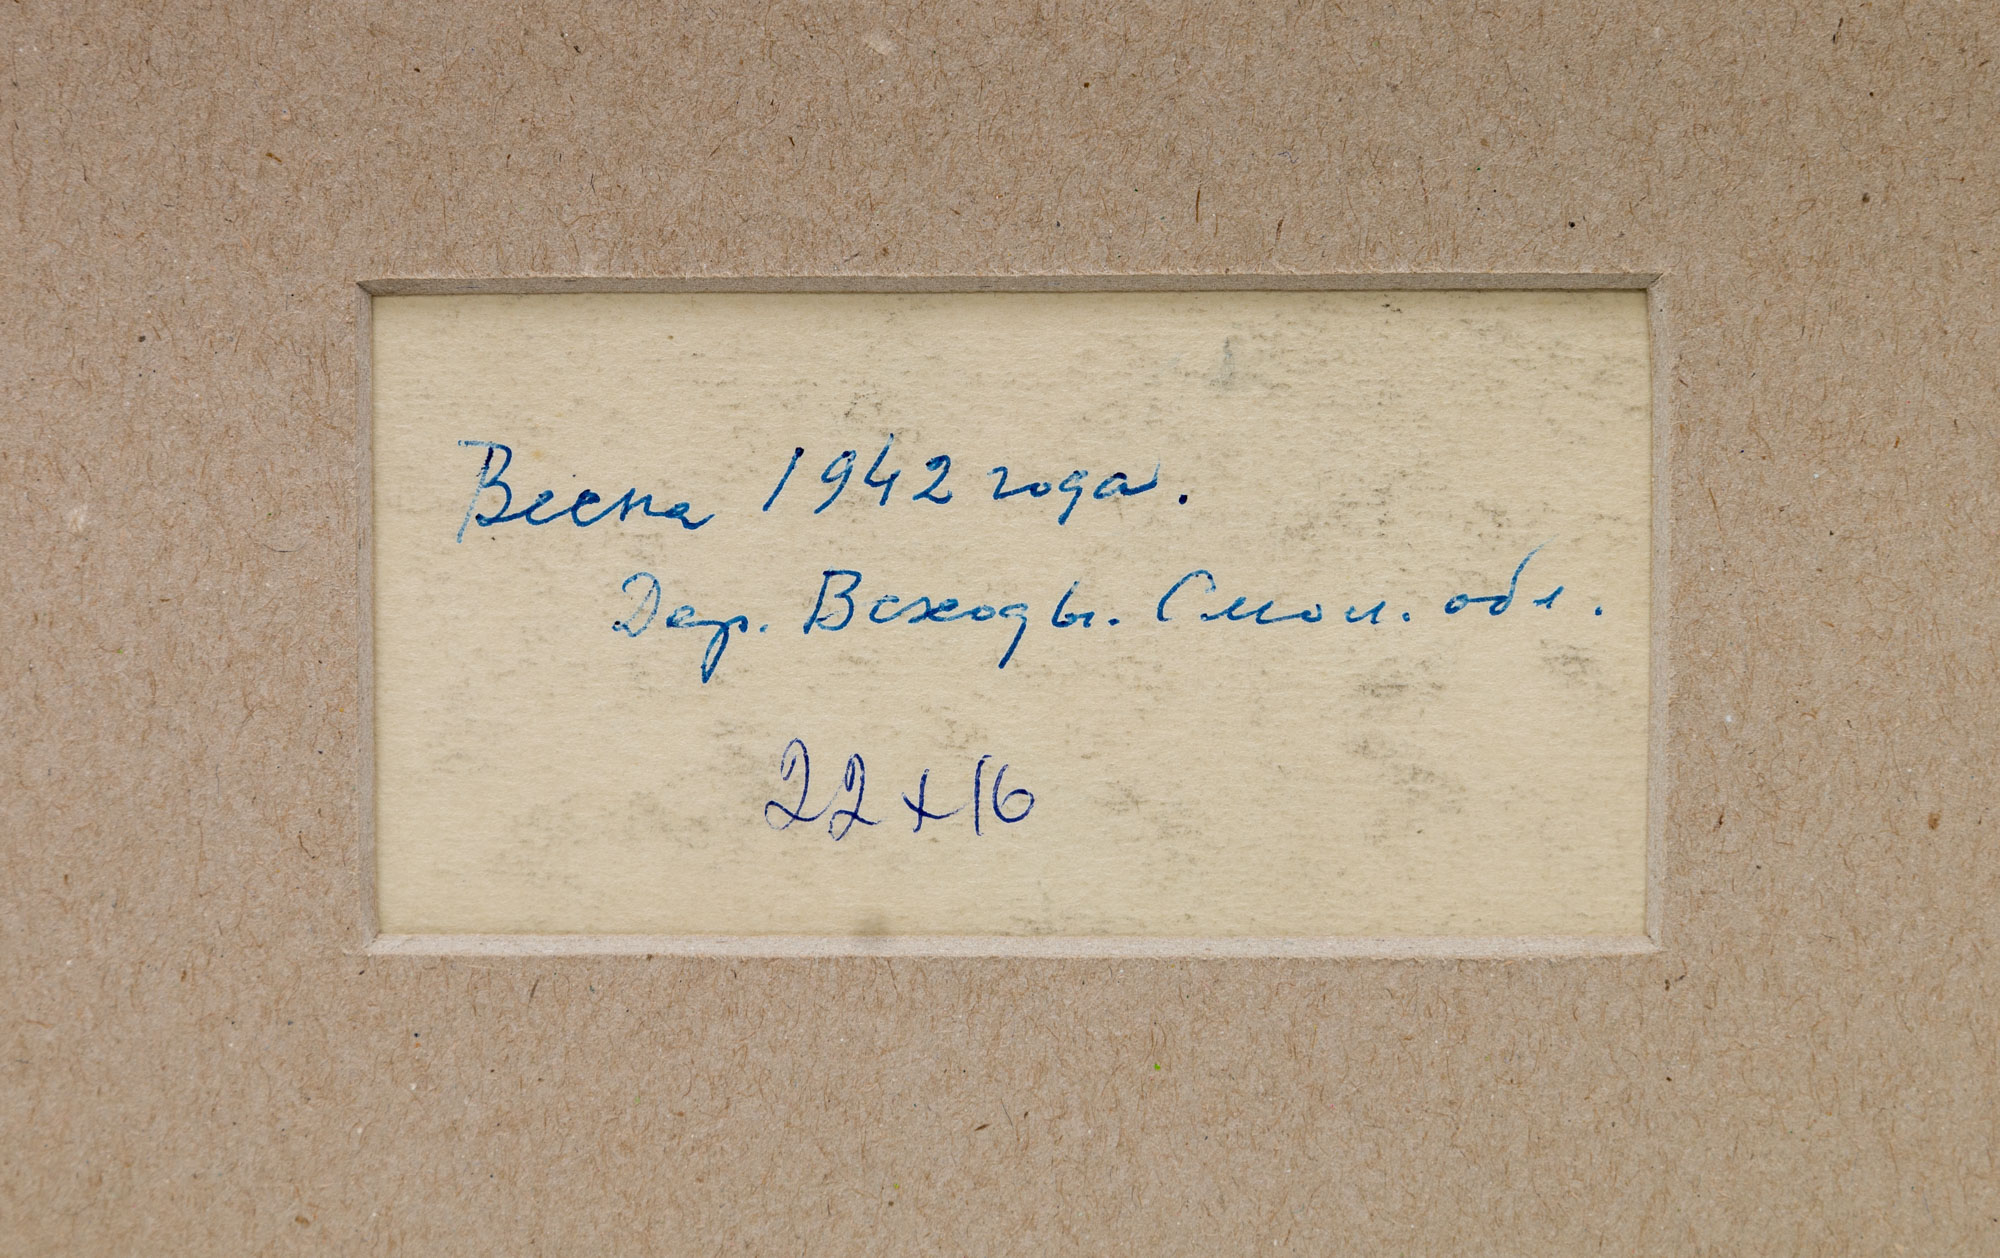 Весна 1942 года.
Дер. Всходы. Смол. обл.
22 x 16